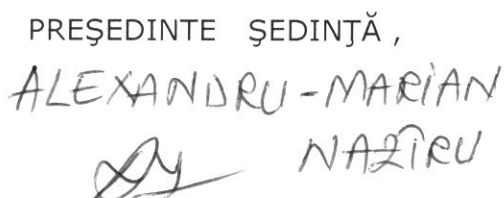 PREŞEDINTE ŞEDINŢĂ,
ALEXANDRU-MARIAN
NAZÎRU